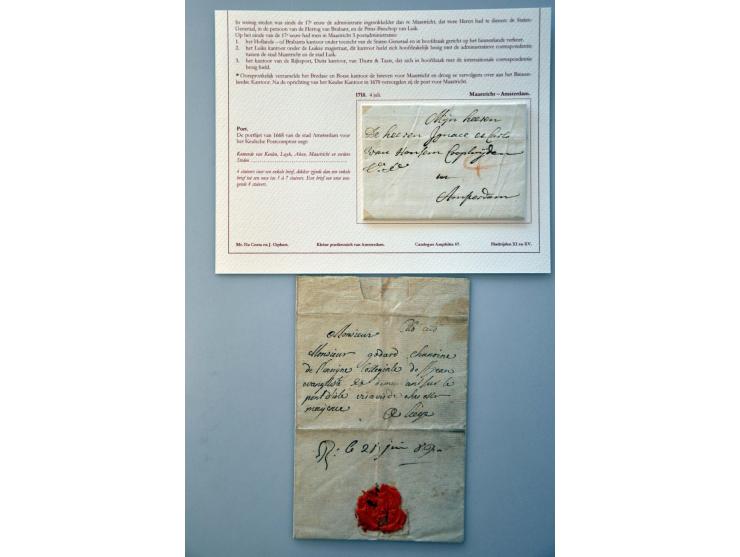 In weinig steden was einde de 17ᵉ eeuw de administratie ingewikkelder dan te Maastricht, dat twee Heren had te dienen: de Staten-
Generaal, in de persoon van de Hertog van Brabant, en de Prins-Bisschop van Luik.
Op het einde van de 17ᵉ eeuw had men in Maastricht 3 postadministraties:
1. het Hollands - of Brabants kantoor onder toezicht van de Staten-Generaal en in hoofdzaak gericht op het binnenlandse verkeer.
2. het Luiks kantoor onder de Luikse magistraat, dit kantoor hield zich hoofdzakelijk bezig met de administratieve correspondentie
tussen de stad Maastricht en de stad Luik.
3. het kantoor van de Rijkspost, Duits kantoor, van Thurn & Taxis, dat zich in hoofdzaak met de internationale correspondentie
bezig hield.
* Oorspronkelijk verzamelde het Bredase en Bosse kantoor de brieven voor Maastricht en droeg ze vervolgens over aan het Binnen-
landse Kantoor. Na de oprichting van het Keulse Kantoor in 1670 verzorgde zij de post voor Maastricht.
1710. 4 juli. Maastricht - Amsterdam.
Port.
De portlijst van 1668 van de stad Amsterdam voor
het Keulsche Postcomptoir zegt:
Komende van Keulen, Luyk, Aken, Maastricht en verdere
Steden
4 stuivers voor een enkele brief, dikker zijnde dan een enkele
brief tot een once toe 5 à 7 stuivers. Een brief van onze ver-
gende 4 stuivers.
Mijn heeren
De heeren Ignace et Carlo
van Hansem Coopluyden
in
Amsterdam
Mr. Da Costa en J. Giphart. Kleine postkroniek van Amsterdam. Catalogus Amphilex 67. Bladzijden XI en XV.
Monsieur
Monsieur godard chanoine
de l'insigne Collegiale de St Jean
evangeliste
pont d'isle vis a vis de
A Liege
R: le 21 juin